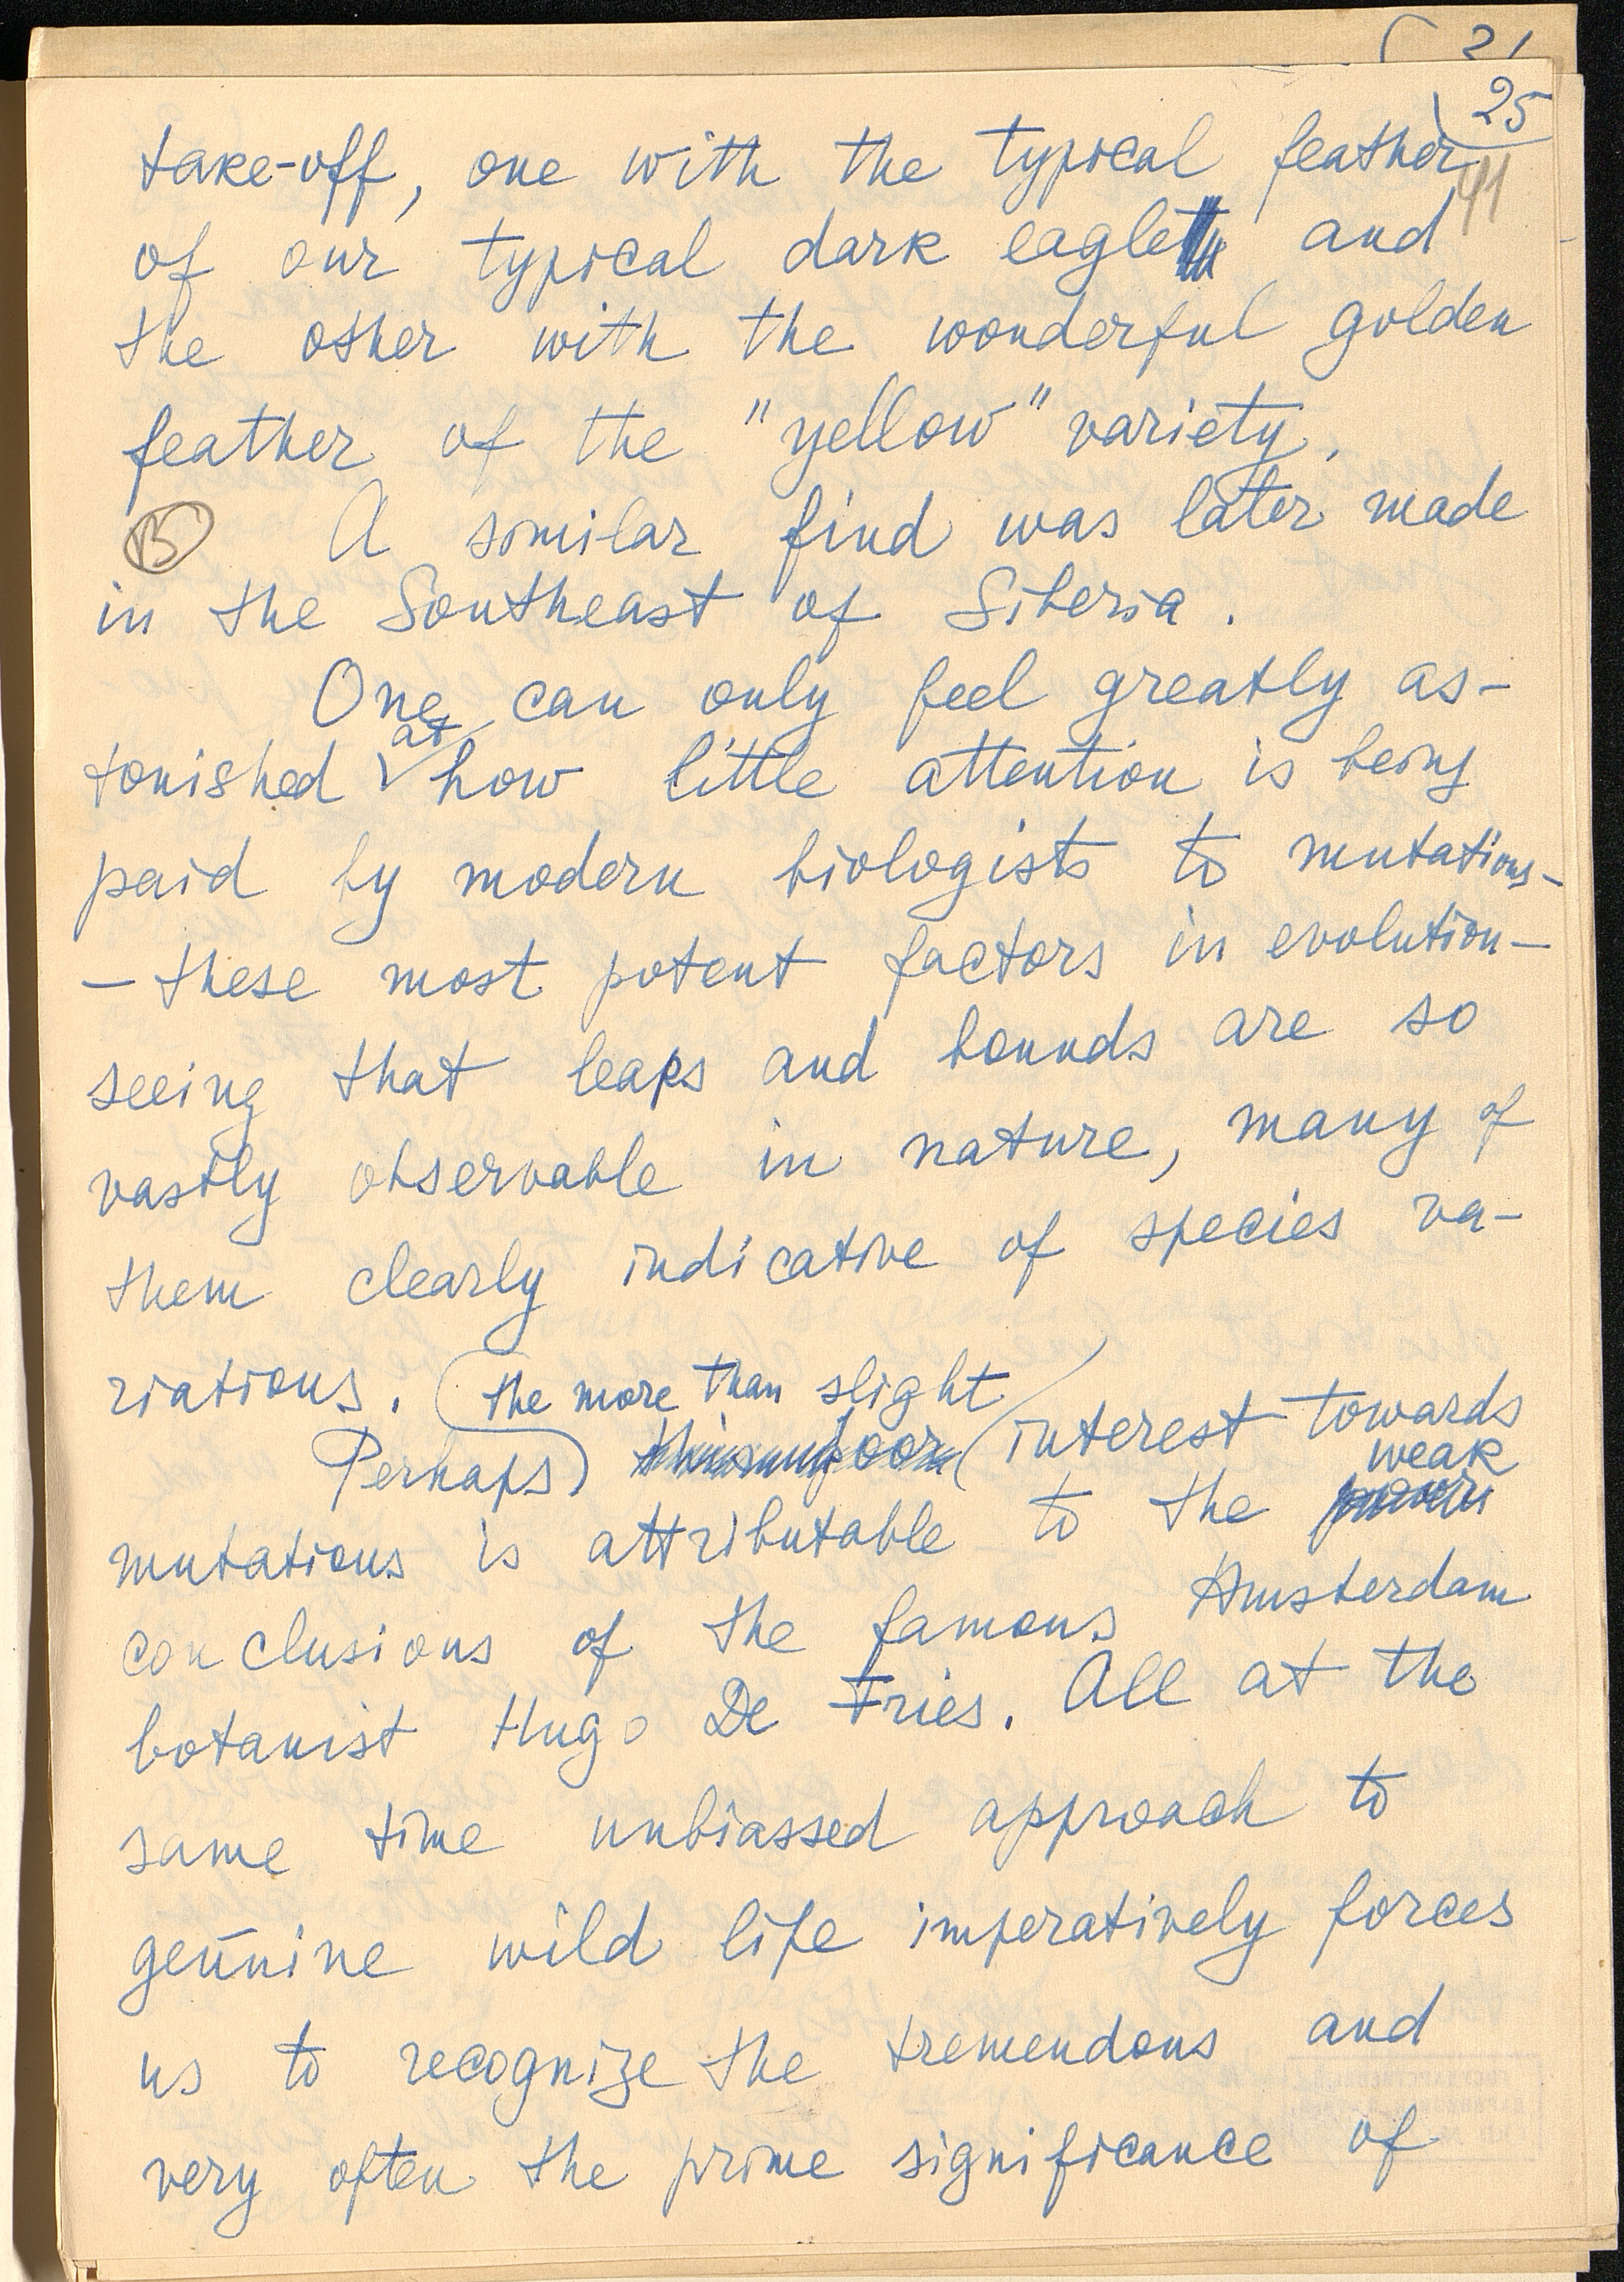 21
25
41
take-off, one with the typical feather
of our typical dark eagle and
the other with the wonderful golden
feather of the "yellow" variety.
B A similar find was later made
in the Southeast of Siberia.
One can only feel greatly as-
tonished at how little attention is being
paid by modern biologists to mutations-
- these most potent factors in evolution-
seeing that leaps and bounds are so
vastly observable in nature, many of
them clearly indicative of species va-
riations.
the more than slight
Perhaps interest towards
weak
mutations is attributable to the
conclusions of the famous Amsterdam
botanist Hugo De Fries. All at the
same time unbiassed approach to
genuine wild life imperatively forces
us to recognize the tremendous and
very often the prime significance of